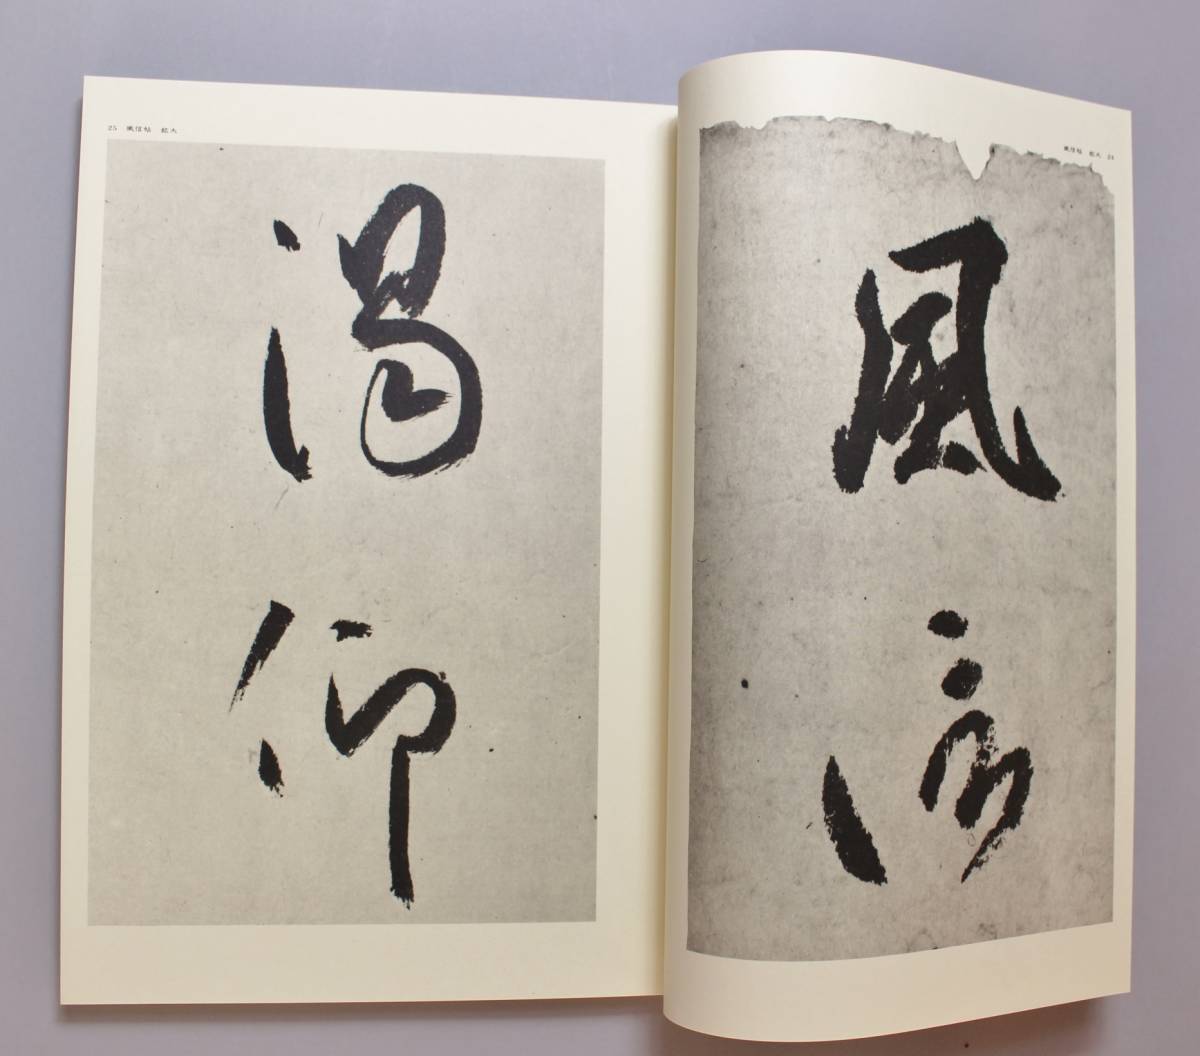 風信帖 拡大 24
風信
25 風信帖 拡大
渇仰